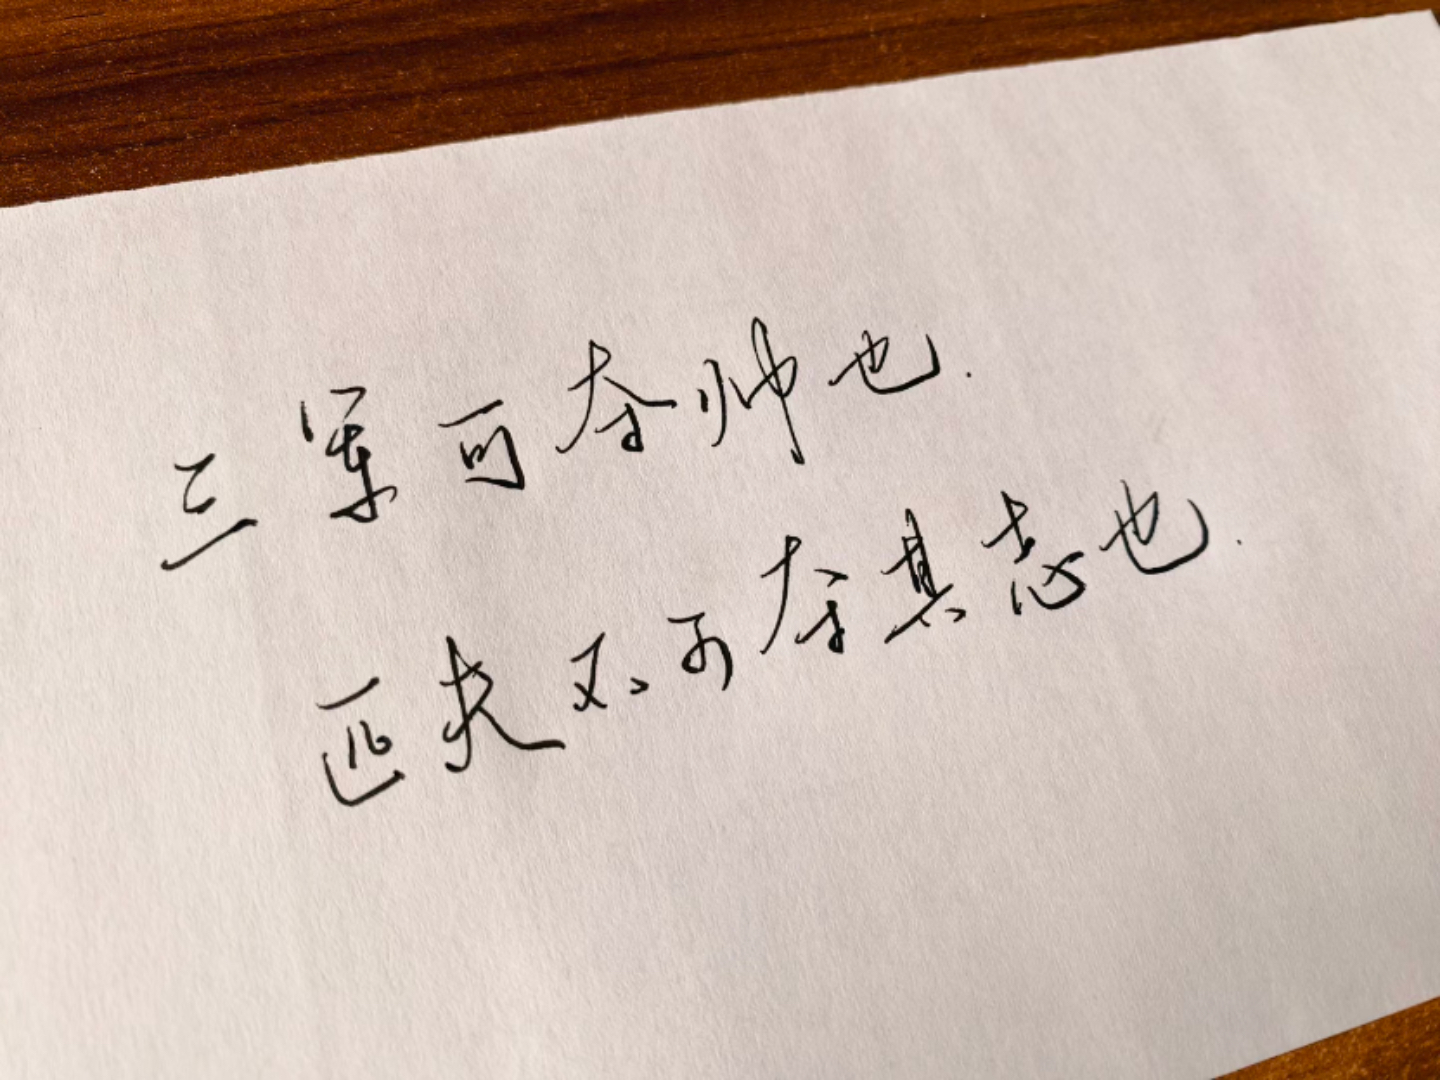 三军可夺帅也.
匹夫不可夺其志也.